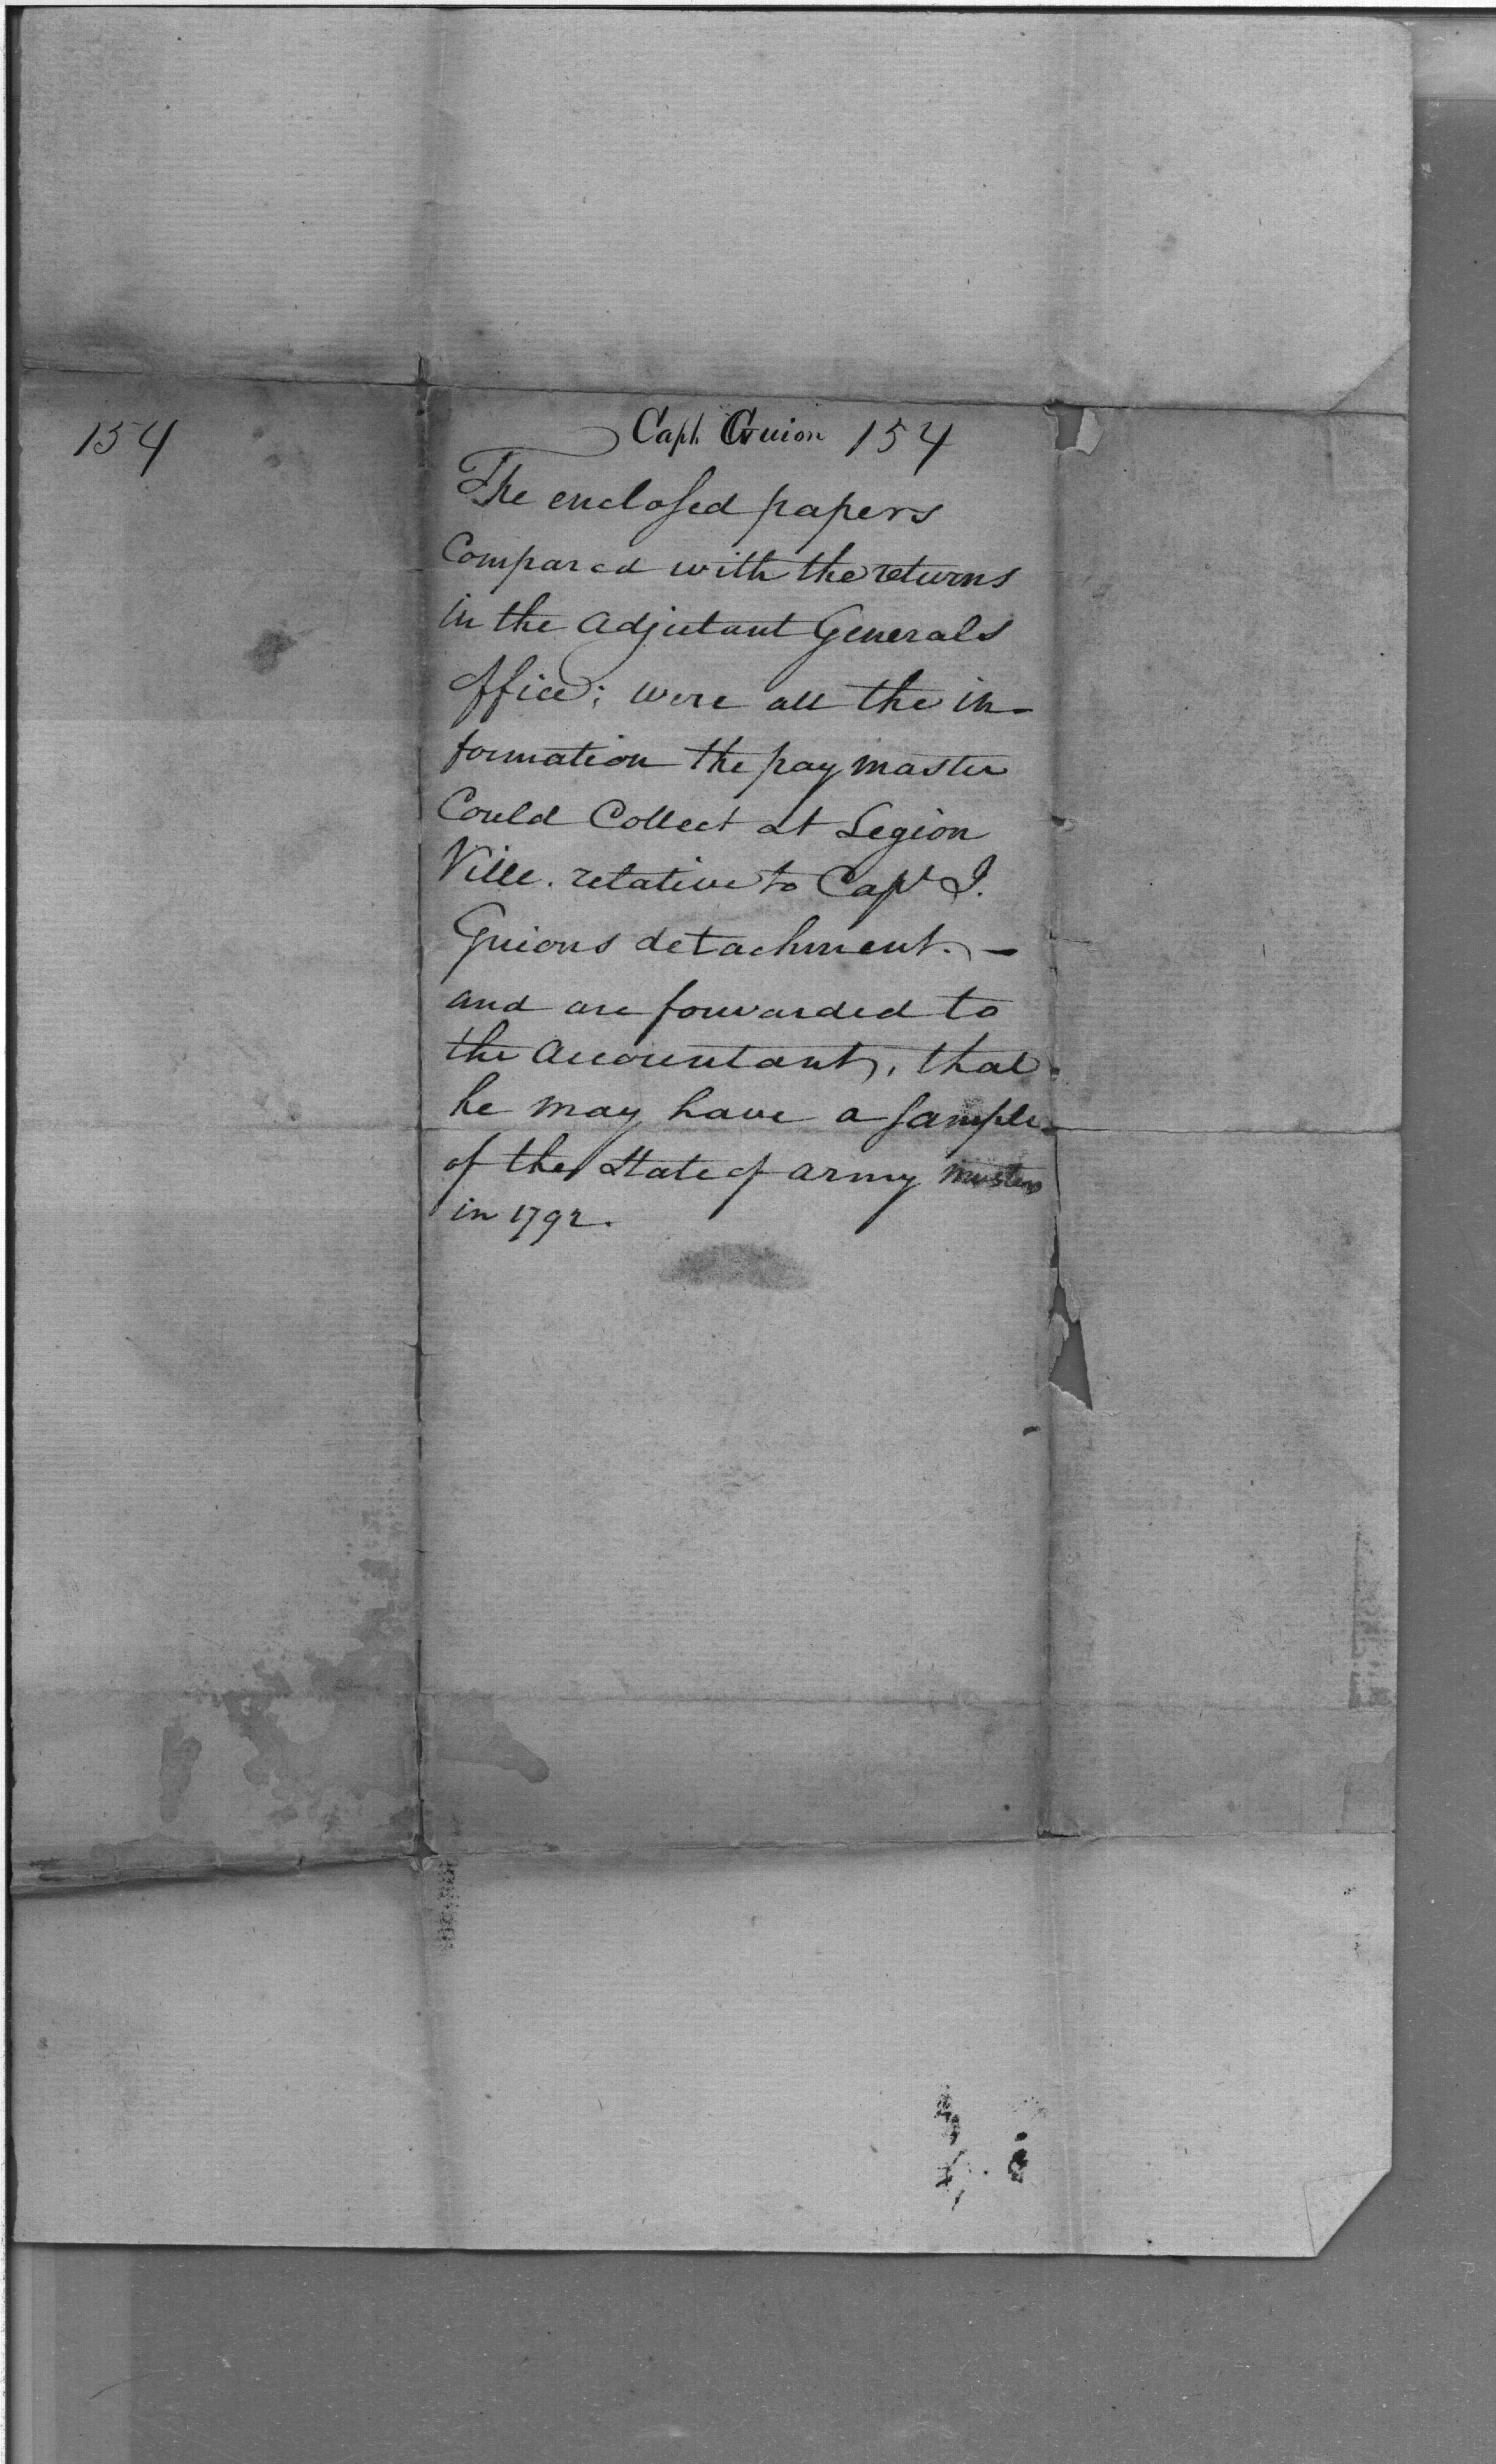 154
Capt. Guion 154
The enclosed papers
Compared with the returns
in the Adjutant Generals
office; were all the in-
formation the pay master
Could Collect at Legion
Ville. relative to Capt I.
Guions detachment. -
and are forwarded to
the Accountant, that
he may have a sample
of the State of army musters
in 1792.